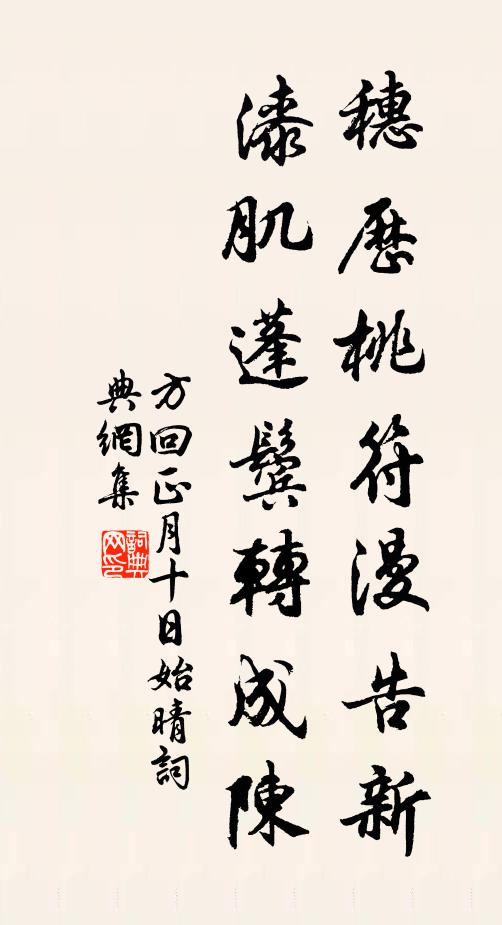 穗曆桃符漫告新
漆肌蓬鬢轉成陳
方回正月十日始晴詞
典網集
詞典
网印